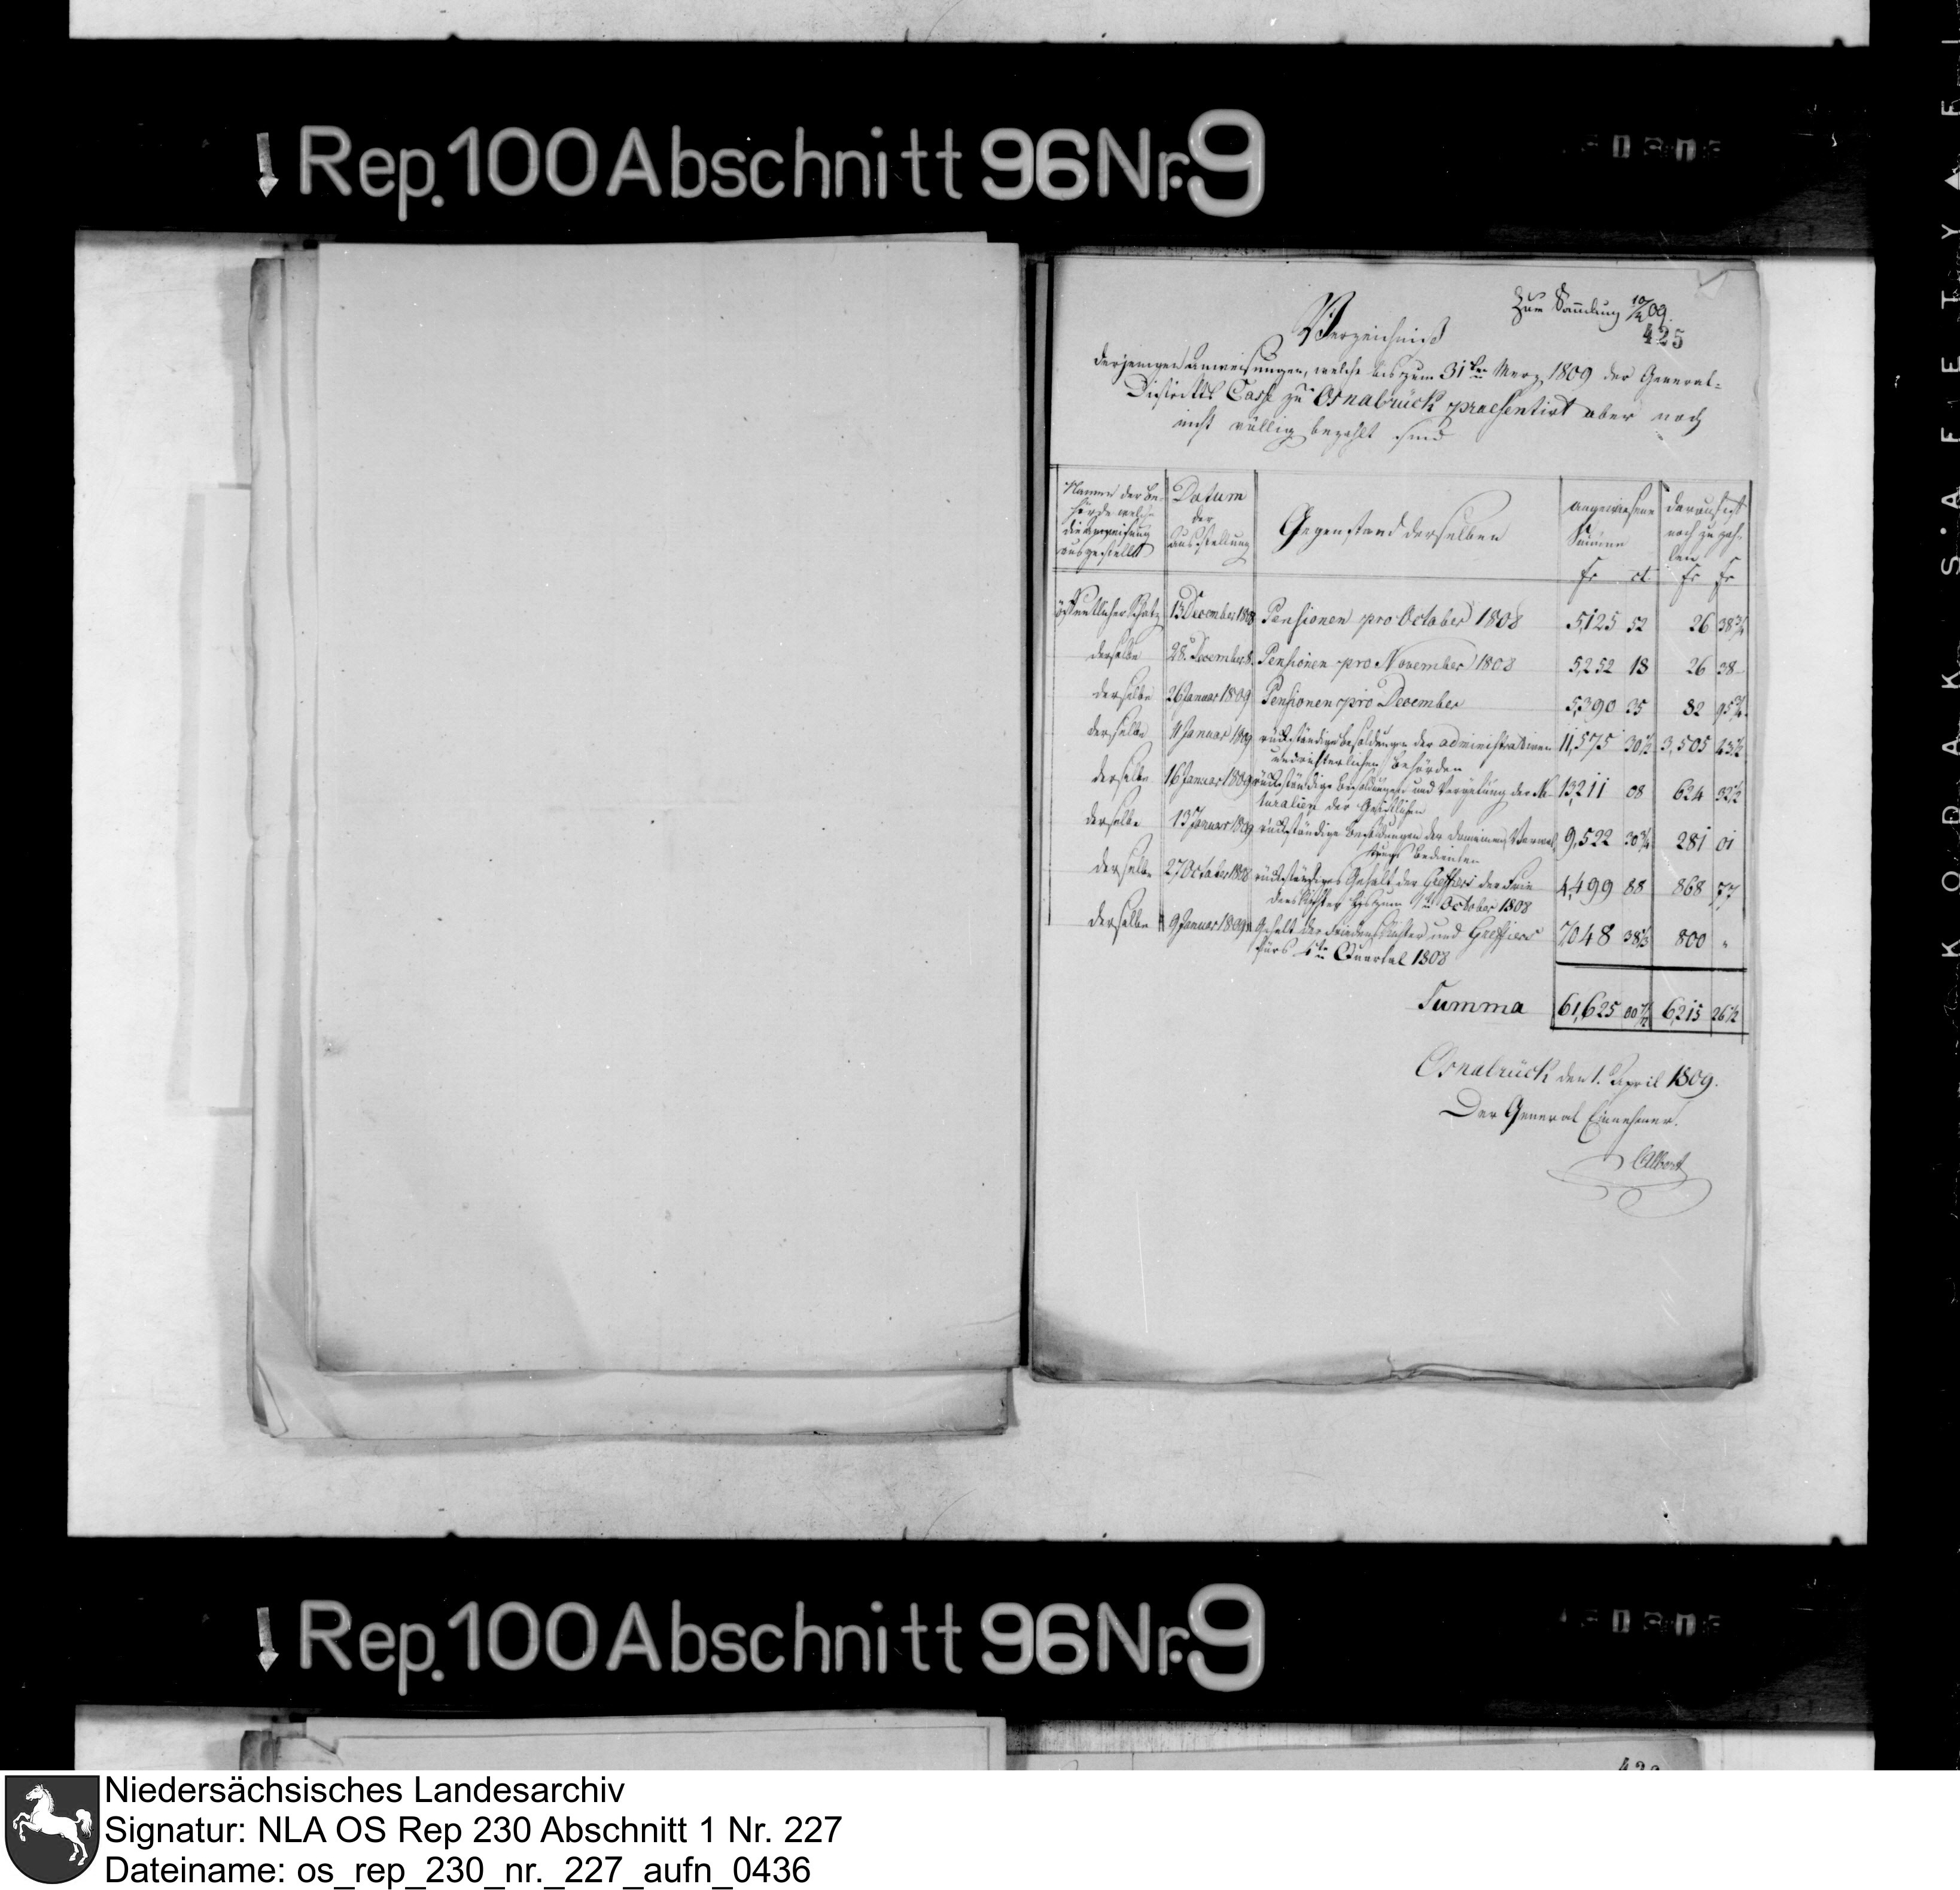 Rep. 100 Abschnitt 96 Nr. 9
Zur Samlung 10/4 09.
425
Verzeichniß
derjenigen Anweisungen, welche bis zum 31ten Merz 1809 der General-
Districts Casse zu Osnabrück praesentirt aber noch
nicht völlig bezahlt sind
Namen der Be-
hörde welche
die Anweisung
ausgestellt
Datum
der
Ausstellung
Gegenstand derselben
angewiesene
Summe
fr ct
darauf ist
noch zu zah-
len
fr fr
öffentlicher Schatz 13 December 1808 Pensionen pro October 1808 5,125 52 26 38 3/4
derselbe 28. December 8. Pensionen pro November 1808 5,252 18 26 38
derselbe 26 Januar 1809 Pensionen pro December 5,390 35 82 95 3/4
derselbe 11 Januar 1809 rückständige Besoldungen der administrativen 11,575 30 1/2 3,505 43 1/2
und richterlichen Behörden
derselbe 16 Januar 1809 rückständige Besoldungen und Vergütung der Na- 13,211 08 624 32 1/2
turalien der Geistlichen
derselbe 13 Januar 1809 rückständige Besoldungen der Domainen Verwal- 9,522 30 3/4 281 01
tungs Bedienten
derselbe 27 October 1808 rückständiges Gehalt der Greffiers der Frie- 4,499 88 868 77
densrichter bis zum 1n October 1808
derselbe 9 Januar 1809 Gehalt der Friedensrichter und Greffiers 7,048 38 1/3 800 "
fürs 4te Quartal 1808
Summa 61,625 00 7/12 6,215 26 1/2
Osnabrück den 1. April 1809.
Der General Einnehmer.
Albert
Rep. 100 Abschnitt 96 Nr. 9
Niedersächsisches Landesarchiv
Signatur: NLA OS Rep 230 Abschnitt 1 Nr. 227
Dateiname: os_rep_230_nr._227_aufn_0436
KODAK SAFETY